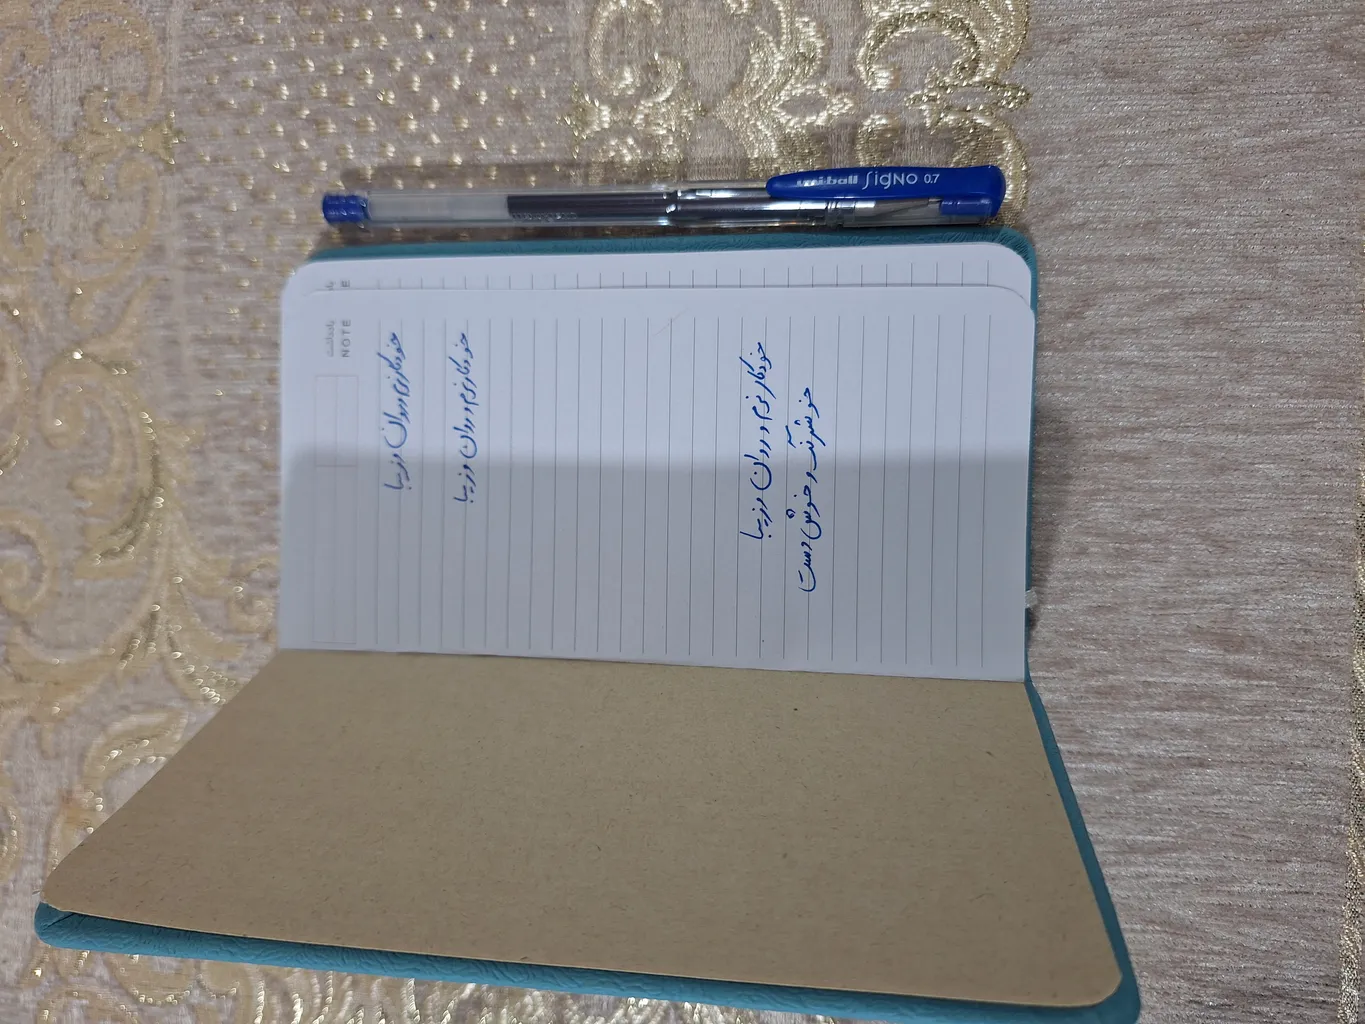 uni-ball Signo 0.7
یادداشت
NOTE
خودکار نرم و روان و زیبا
خودکار نرم و روان و زیبا
خودکار نرم و روان و زیبا
خوشرنگ و خوش دست